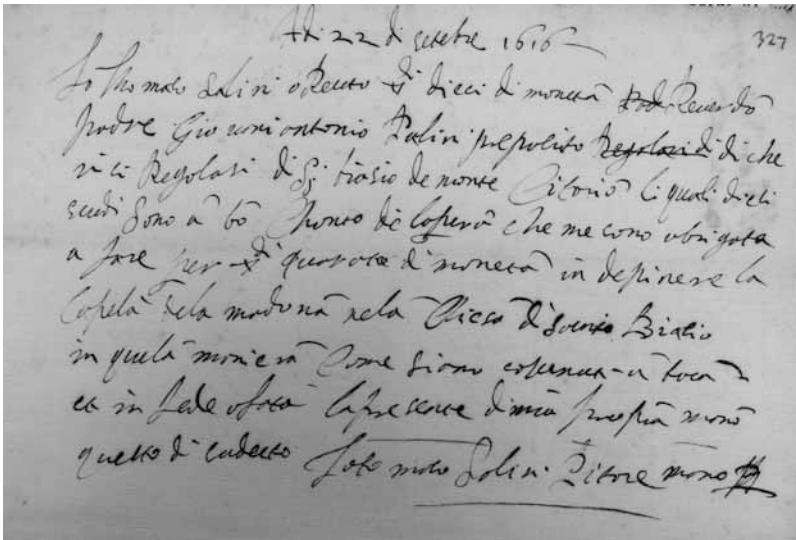 Adi 22 di setebre 1616
327
Io Thomaso Salini o Receuto ∇ dieci di moneta dal Reuerdo
padre Giouaniantonio Pulin prepolito Regolari di di che
rici Regolari di S biasio de monte Citorio li quali dieci
scudi sono a bo Chonto de lopera che me sono obrigata
a fare per ∇ quarata di moneta in depinere la
Capela dela madona nela Chiesa di Biasio
in quela maniera Come siamo a boca
et in fede o fata la presente di mia propia mano
questo di sudecto Io tomaso Salini Pitore mano